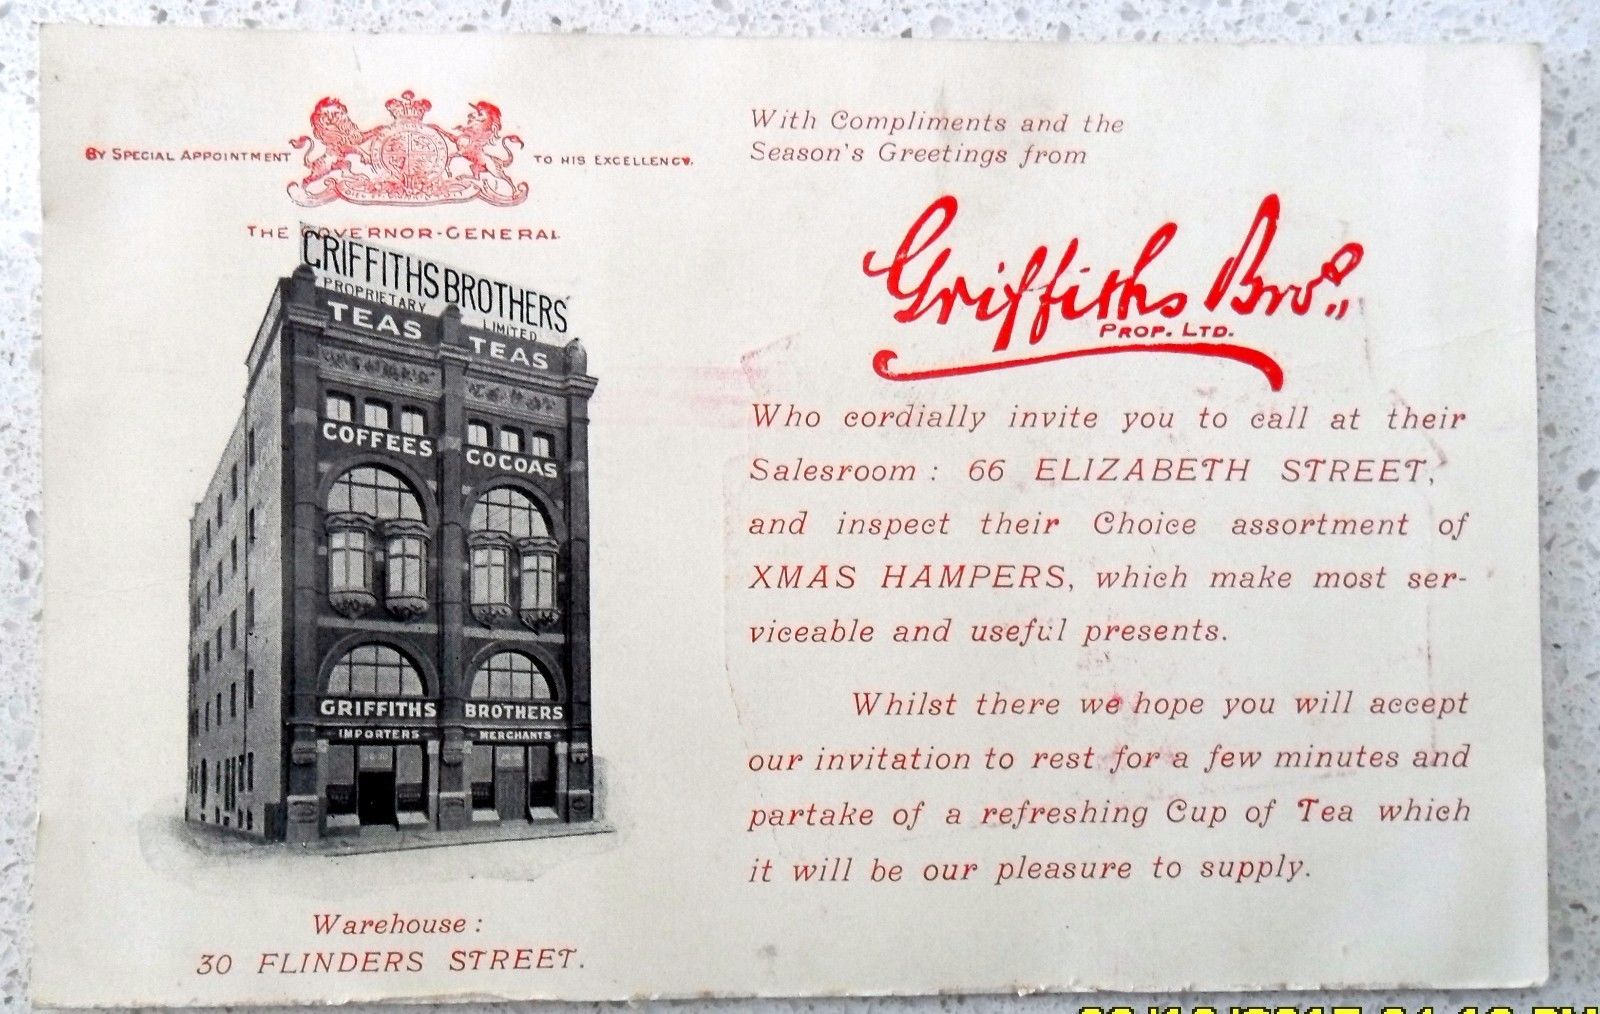 By Special Appointment to His Excellency.
The Governor-General
GRIFFITHS BROTHERS
PROPRIETARY LIMITED
TEAS TEAS
COFFEES COCOAS
GRIFFITHS BROTHERS
IMPORTERS MERCHANTS
Warehouse:
30 FLINDERS STREET.
With Compliments and the
Season's Greetings from
Griffiths Bros.,
PROP. LTD.
Who cordially invite you to call at their
Salesroom: 66 ELIZABETH STREET,
and inspect their Choice assortment of
XMAS HAMPERS, which make most ser-
viceable and useful presents.
Whilst there we hope you will accept
our invitation to rest for a few minutes and
partake of a refreshing Cup of Tea which
it will be our pleasure to supply.